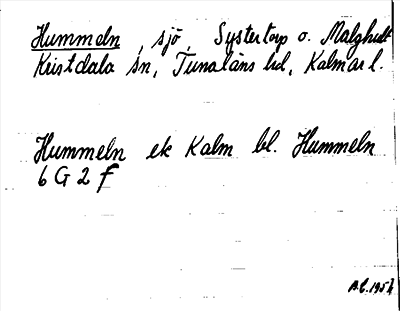 Hummeln, sjö, Systertorp o. Malghult
Kristdala sn, Tunaläns hd, Kalmar l.
Hummeln ek Kalm bl. Hummeln
6 G 2 f
A.C. 1957